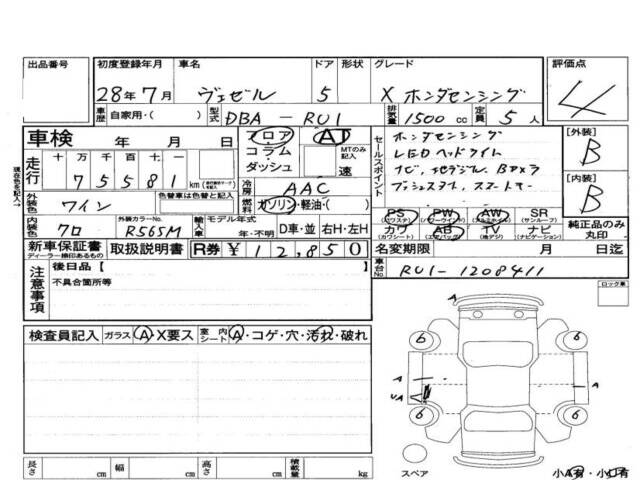 出品番号 初度登録年月 車名 ドア 形状 グレード 評価点
28年7月 ヴェゼル 5 X ホンダセンシング 4
車歴 自家用・( ) 型式 DBA-RU1 排気量 1500 cc 定員 5 人
車検 年 月 日 フロア コラム ダッシュ AT MTのみ記入 速
走行 十 万 千 百 十 一
75581 km
セールスポイント
ホンダセンシング
LEDヘッドライト
ナビ,地デジ,
プッシュスタ,スマートキー
[外装] B
[内装] B
冷房 AAC
外装色 ワイン 色替車は色替と記入 燃料 ガソリン・軽油・( )
PS (パワステ) PW (パワーウインド) AW (アルミホイル) SR (サンルーフ) 純正品のみ丸印
カワ (カワシート) AB (エアバッグ) TV (地デジ) ナビ (ナビゲーション)
内装色 クロ 外装カラーNo. R565M 輸入車 モデル年式 年・不明 D車・並 右H・左H
新車保証書 ディーラー捺印あるもの 取扱説明書 R券 ¥12,850 名変期限 月 日迄
注意事項 後日品【
不具合箇所等
車台No. RU1-1208411
ロック車
検査員記入 ガラス A・X要ス 室内シート A・コゲ・穴・汚れ・破れ
A
6 6
A A
UA
6 6
スペア
長さ cm 幅 cm 高さ cm 積載量 kg 小A有・小U有
現在色を記入↑